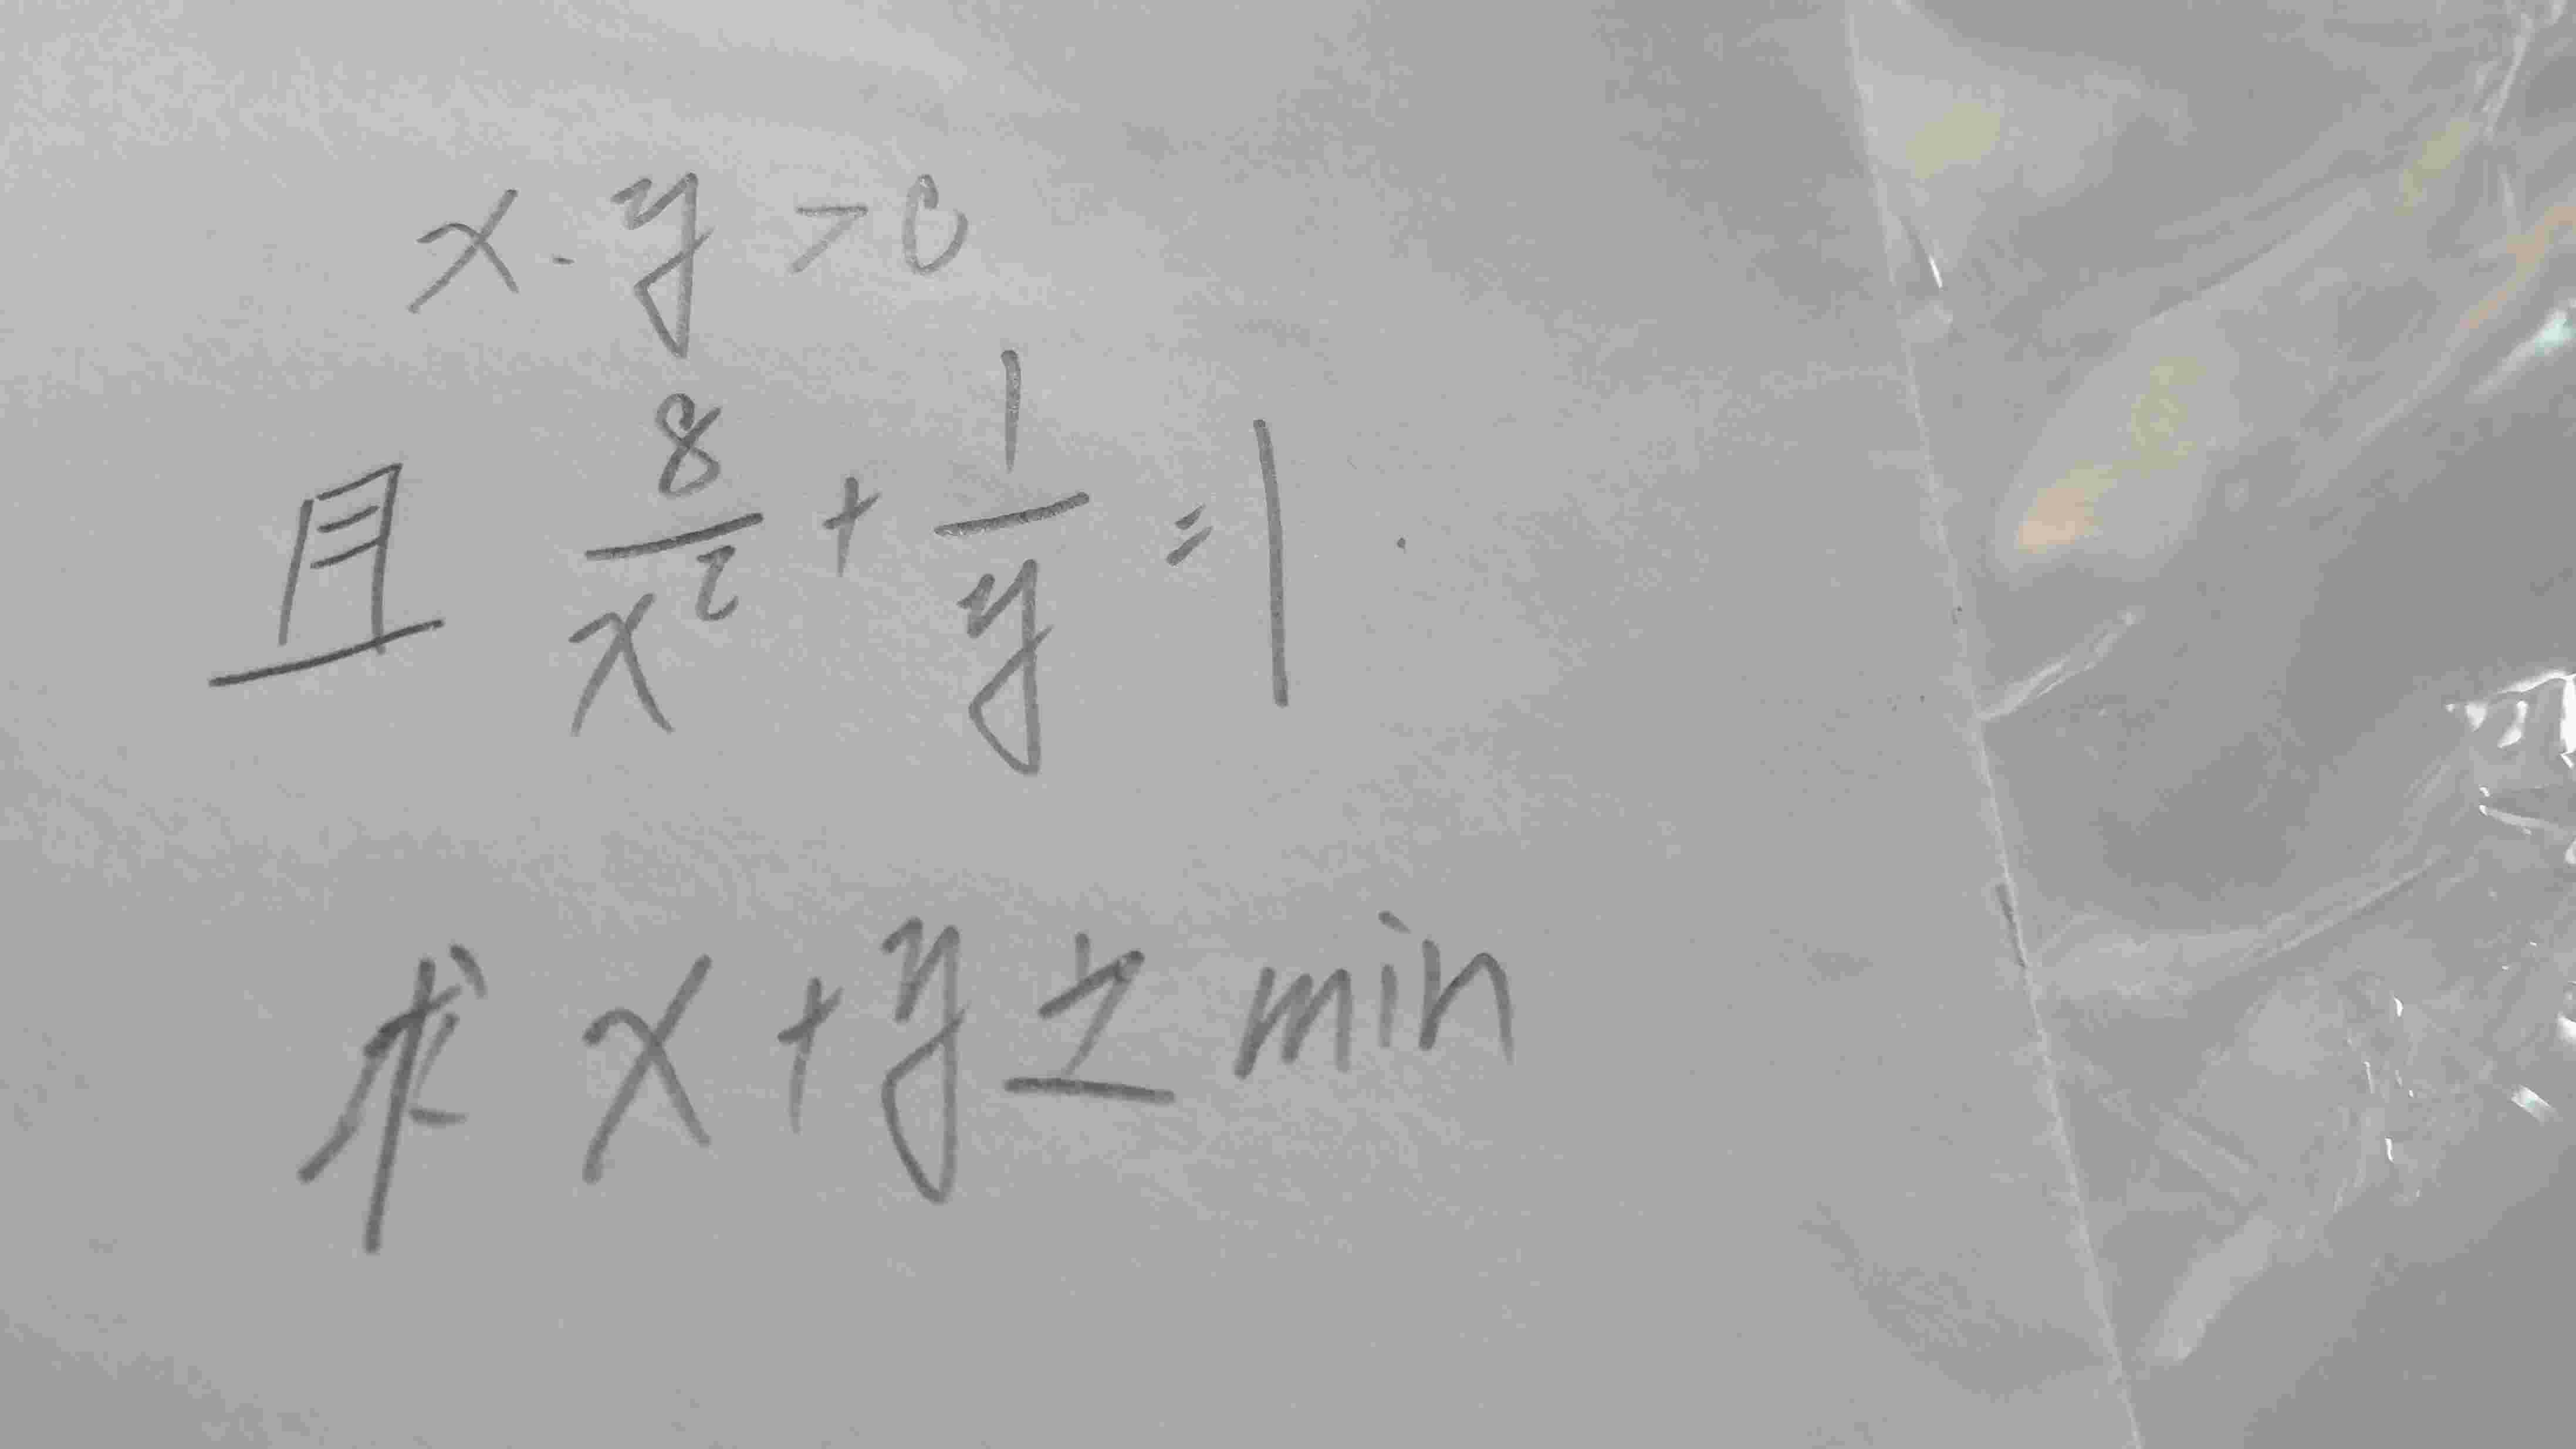 x.y>0
且 8/x² + 1/y = 1
求 x+y 之 min